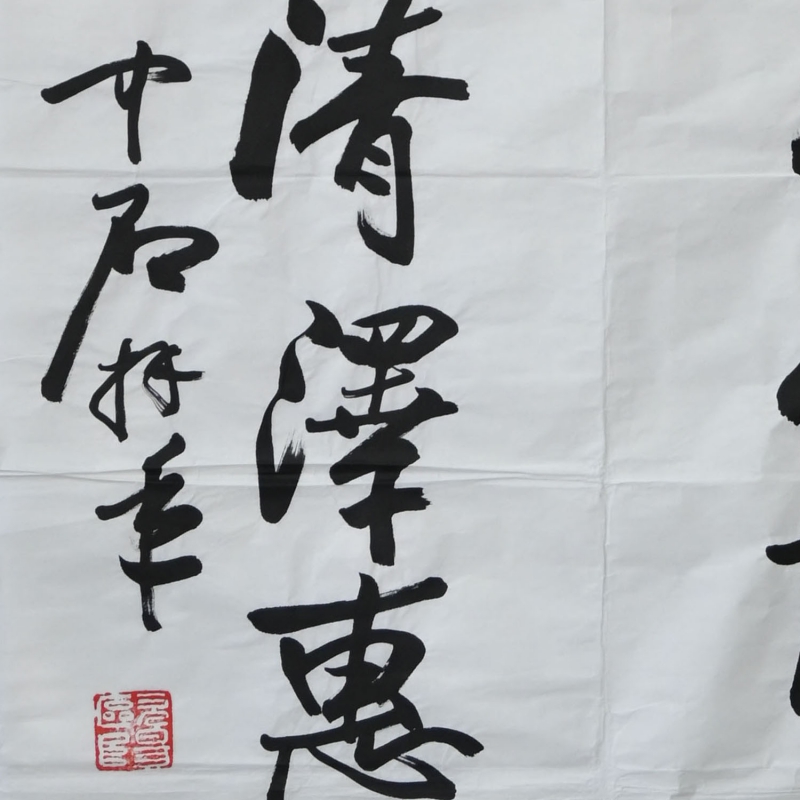 清澤惠
中石拜年